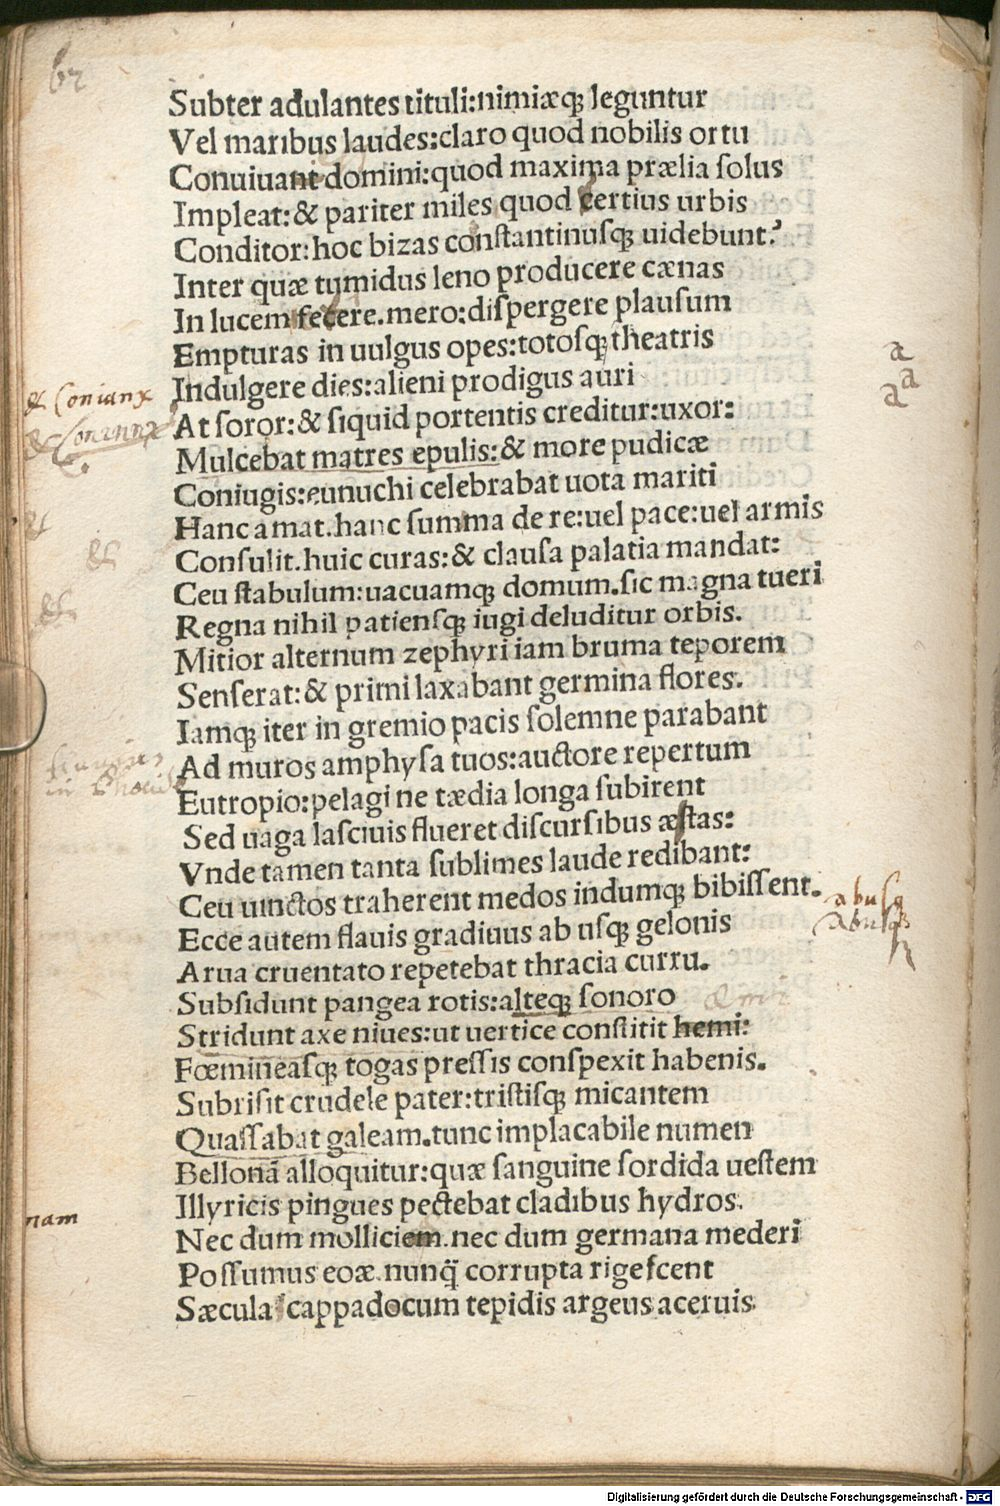 62
Subter adulantes tituli:nimiæq; leguntur
Vel maribus laudes:claro quod nobilis ortu
Conuiuant domini:quod maxima prælia ſolus
Impleat:& pariter miles quod certius urbis
Conditor:hoc bizas conſtantinuſq; uidebunt?
Inter quæ tumidus leno producere cænas
In lucem fecere.mero:diſpergere plauſum
Empturas in uulgus opes:totoſq; theatris
Indulgere dies:alieni prodigus auri
At soror:& ſiquid portentis creditur:uxor:
Mulcebat matres epulis:& more pudicæ
Coniugis:eunuchi celebrabat uota mariti
Hanc amat.hanc ſumma de re:uel pace:uel armis
Conſulit.huic curas:& clauſa palatia mandat:
Ceu ſtabulum:uacuamq; domum.ſic magna tueri
Regna nihil patienſq; iugi deluditur orbis.
Mitior alternum zephyri iam bruma teporem
Senſerat:& primi laxabant germina flores.
Iamq; iter in gremio pacis ſolemne parabant
Ad muros amphyſa tuos:auctore repertum
Eutropio:pelagi ne tædia longa ſubirent
Sed uaga laſciuis flueret diſcurſibus æſtas:
Vnde tamen tanta ſublimes laude redibant:
Ceu uinctos traherent medos indumq; bibiſſent.
Ecce autem flauis gradiuus ab uſq; gelonis
Arua cruentato repetebat thracia curru.
Subſidunt pangea rotis:alteq; ſonoro
Stridunt axe niues:ut uertice conſtitit hemi:
Fœmineaſq; togas preſſis conſpexit habenis.
Subriſit crudele pater:triſtiſq; micantem
Quaſſabat galeam.tunc implacabile numen
Bellonā alloquitur:quæ ſanguine ſordida ueſtem
Illyricis pingues pectebat cladibus hydros.
Nec dum molliciem.nec dum germana mederi
Poſſumus eoæ.nunq̄ corrupta rigeſcent
Sæcula cappadocum tepidis argeus aceruis
a
a
a
&
&
&
abuſq
abuſq;
nam
Digitalisierung gefördert durch die Deutsche Forschungsgemeinschaft - DFG